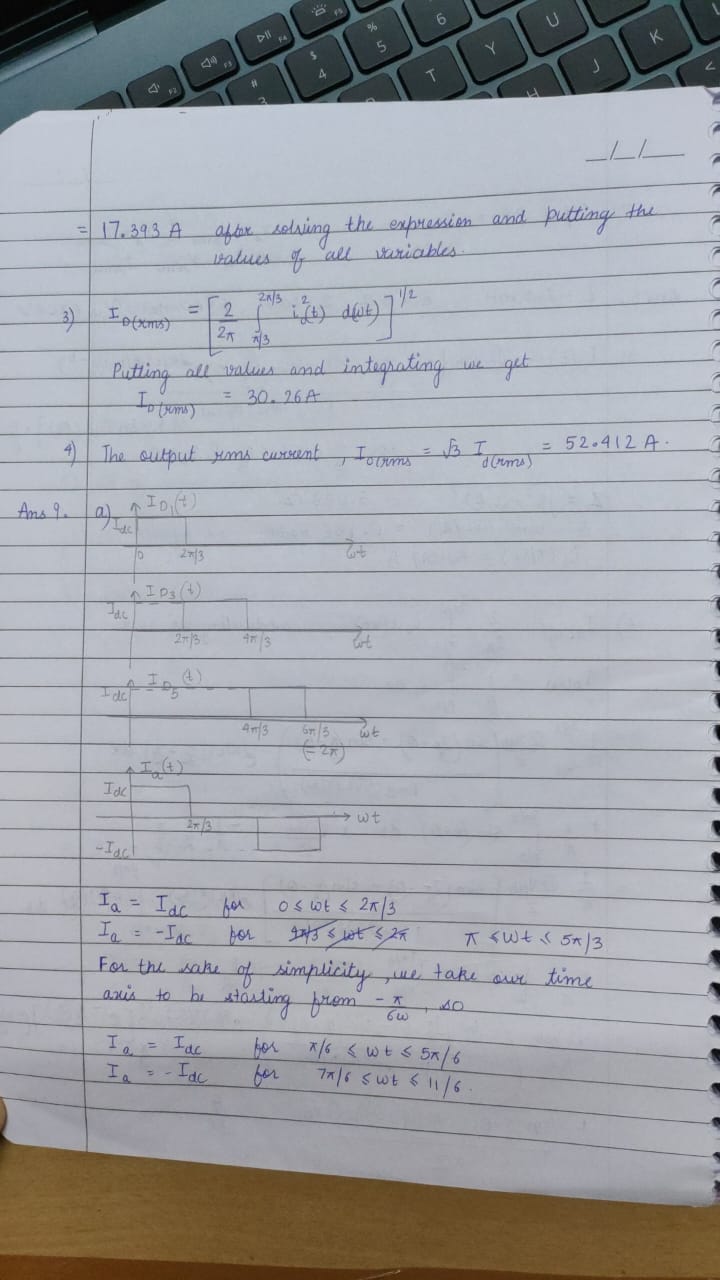 _/_/_
= 17.393 A after solving the expression and putting the
values of all variables.
3) I_D(rms) = [ 2/2π ∫_{π/3}^{2π/3} i²(t) d(ωt) ]^{1/2}
Putting all values and integrating we get
I_D(rms) = 30.26 A
4) The output rms current, I_o(rms) = √3 I_d(rms) = 52.412 A.
Ans 9. a) I_D1(t)
Idc
0 2π/3 ωt
I_D3(t)
Idc
2π/3 4π/3 ωt
I_D5(t)
Idc
4π/3 6π/3 ωt
(= 2π)
I_a(t)
Idc
2π/3 ωt
-Idc
I_a = I_dc for 0 ≤ ωt ≤ 2π/3
I_a = -I_dc for π ≤ ωt ≤ 5π/3
For the sake of simplicity, we take our time
axis to be starting from -π/6ω, so
I_a = I_dc for π/6 ≤ ωt ≤ 5π/6
I_a = -I_dc for 7π/6 ≤ ωt ≤ 11/6.